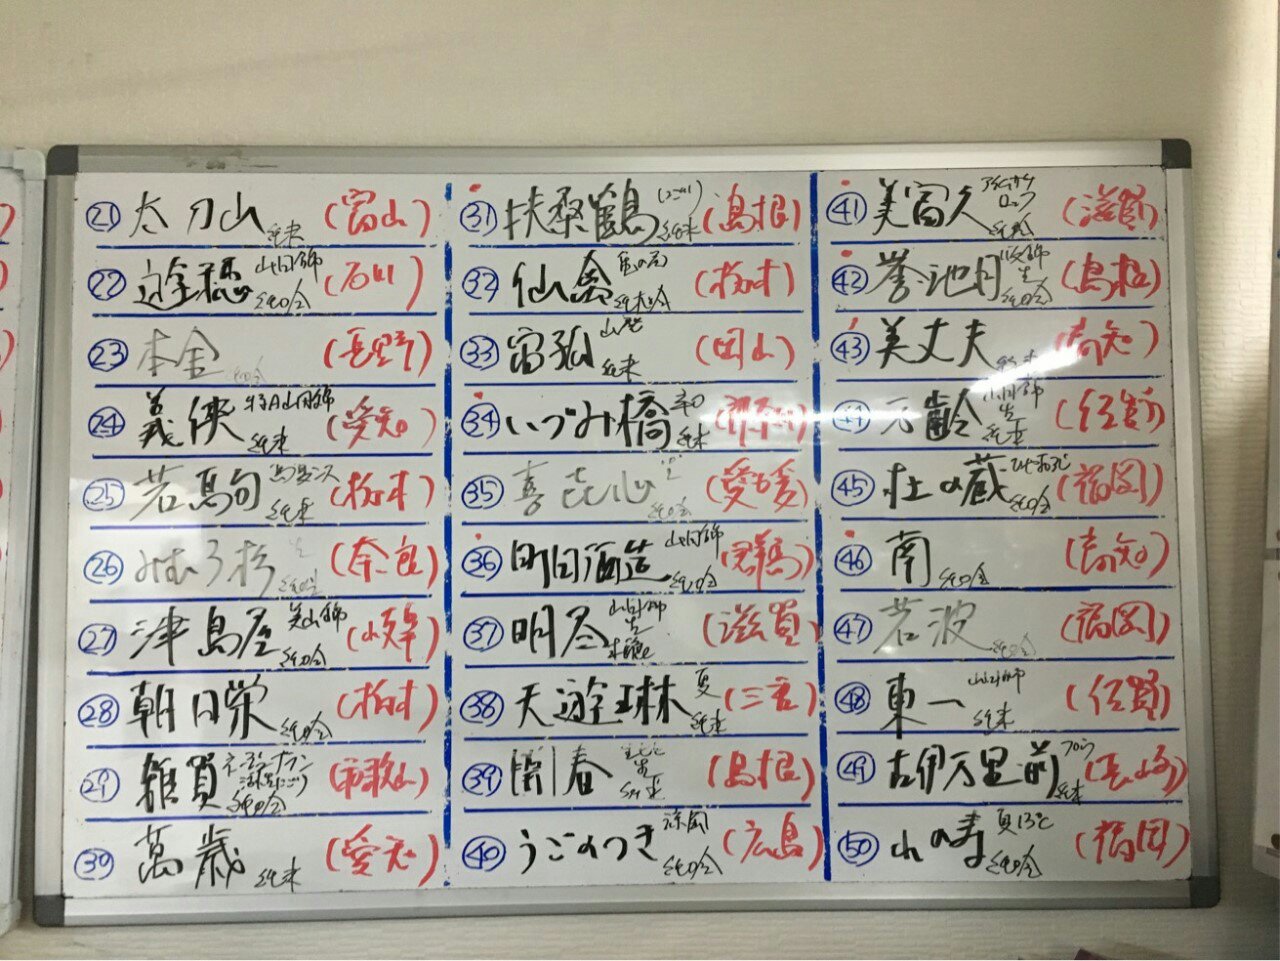 ㉑ 太刀山 純米 (富山)
㉒ 遊穂 山田錦 純吟 (石川)
㉓ 本金 純吟 (長野)
㉔ 義侠 特A山田錦 純米 (愛知)
㉕ 若駒 純米 (栃木)
㉖ みむろ杉 純吟 (奈良)
㉗ 津島屋 美山錦 純吟 (岐阜)
㉘ 朝日栄 純吟 (栃木)
㉙ 雑賀 純吟 (和歌山)
㉚ 萬歳 純米 (愛知)
㉛ 扶桑鶴 (にごり) 純米 (島根)
㉜ 仙禽 亀の尾 純大吟 (栃木)
㉝ 宙狐 山廃 純米 (岡山)
㉞ いづみ橋 辛口 純米 (神奈川)
㉟ 喜花心 純吟 (愛媛)
㊱ 町田酒造 山田錦 純吟 (群馬)
㊲ 明尽 山田錦 生 (滋賀)
㊳ 天遊琳 夏 純米 (三重)
㊴ 開春 純米 (島根)
㊵ うごのつき 涼風 純吟 (広島)
㊶ 美冨久 純吟 (滋賀)
㊷ 誉池月 改良雄町 生 純吟 (島根)
㊸ 美丈夫 純米 (高知)
㊹ 万齢 山田錦 生 純米 (佐賀)
㊺ 杜の蔵 純吟 (福岡)
㊻ 南 純吟 (高知)
㊼ 若波 純吟 (福岡)
㊽ 東一 山田錦 純米 (佐賀)
㊾ 古伊万里前 純米 (長崎)
㊿ 山の寿 夏13℃ 純吟 (福岡)